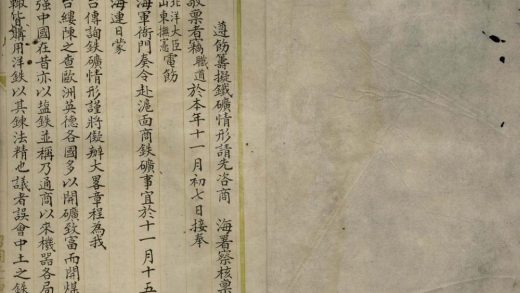 遵飭籌擬鐵礦情形請先咨商 海署察核稟
敬稟者竊職道於本年十一月初七日接奉
北洋大臣
山東撫憲電飭
海軍衙門奏令赴滬面商鉄礦事宜於十一月十五
海連日蒙
台傳詢鉄礦情形謹將儗辦大畧章程為我
台縷陳之查歐洲英德各國多以開礦致富而開煤
强中國在昔亦以塩鉄並稱乃通商以來機器各局
輙皆購用洋鉄以其鍊法精也議者誤會中土之鉄